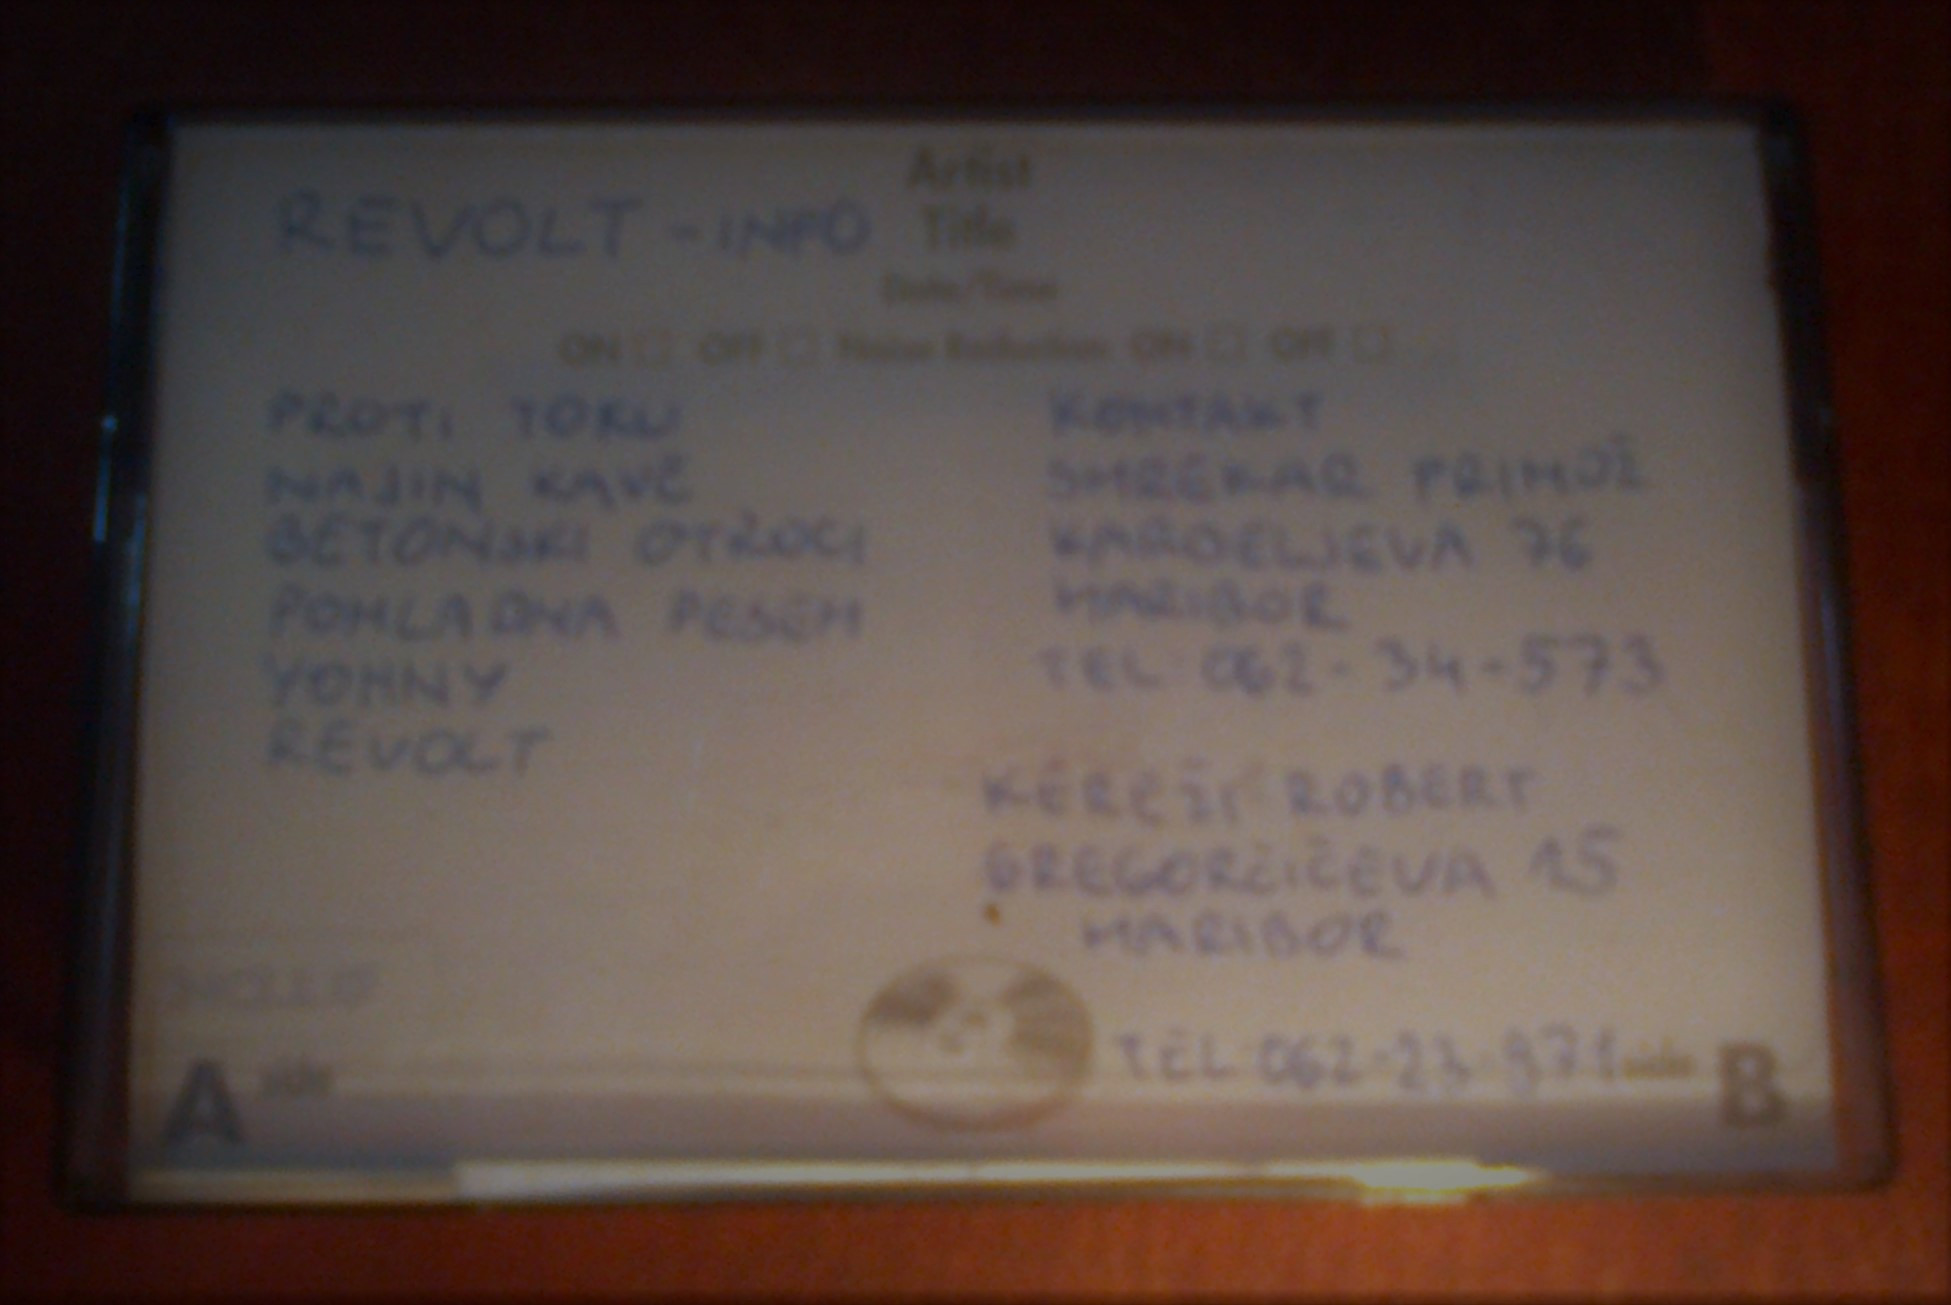 Artist
REVOLT - INFO Title
Date/Time
ON OFF Noise Reduction ON OFF
PROTI TOKU
NAJIN KAVČ
BETONSKI OTROCI
POHLADNA PESEM
YOHNY
REVOLT
KONTAKT
SMREKAR PRIMOŽ
KARDELJEVA 76
MARIBOR
TEL 062-34-573
KEREŽI ROBERT
GREGORČIČEVA 15
MARIBOR
TEL 062-23-971
A side
side B